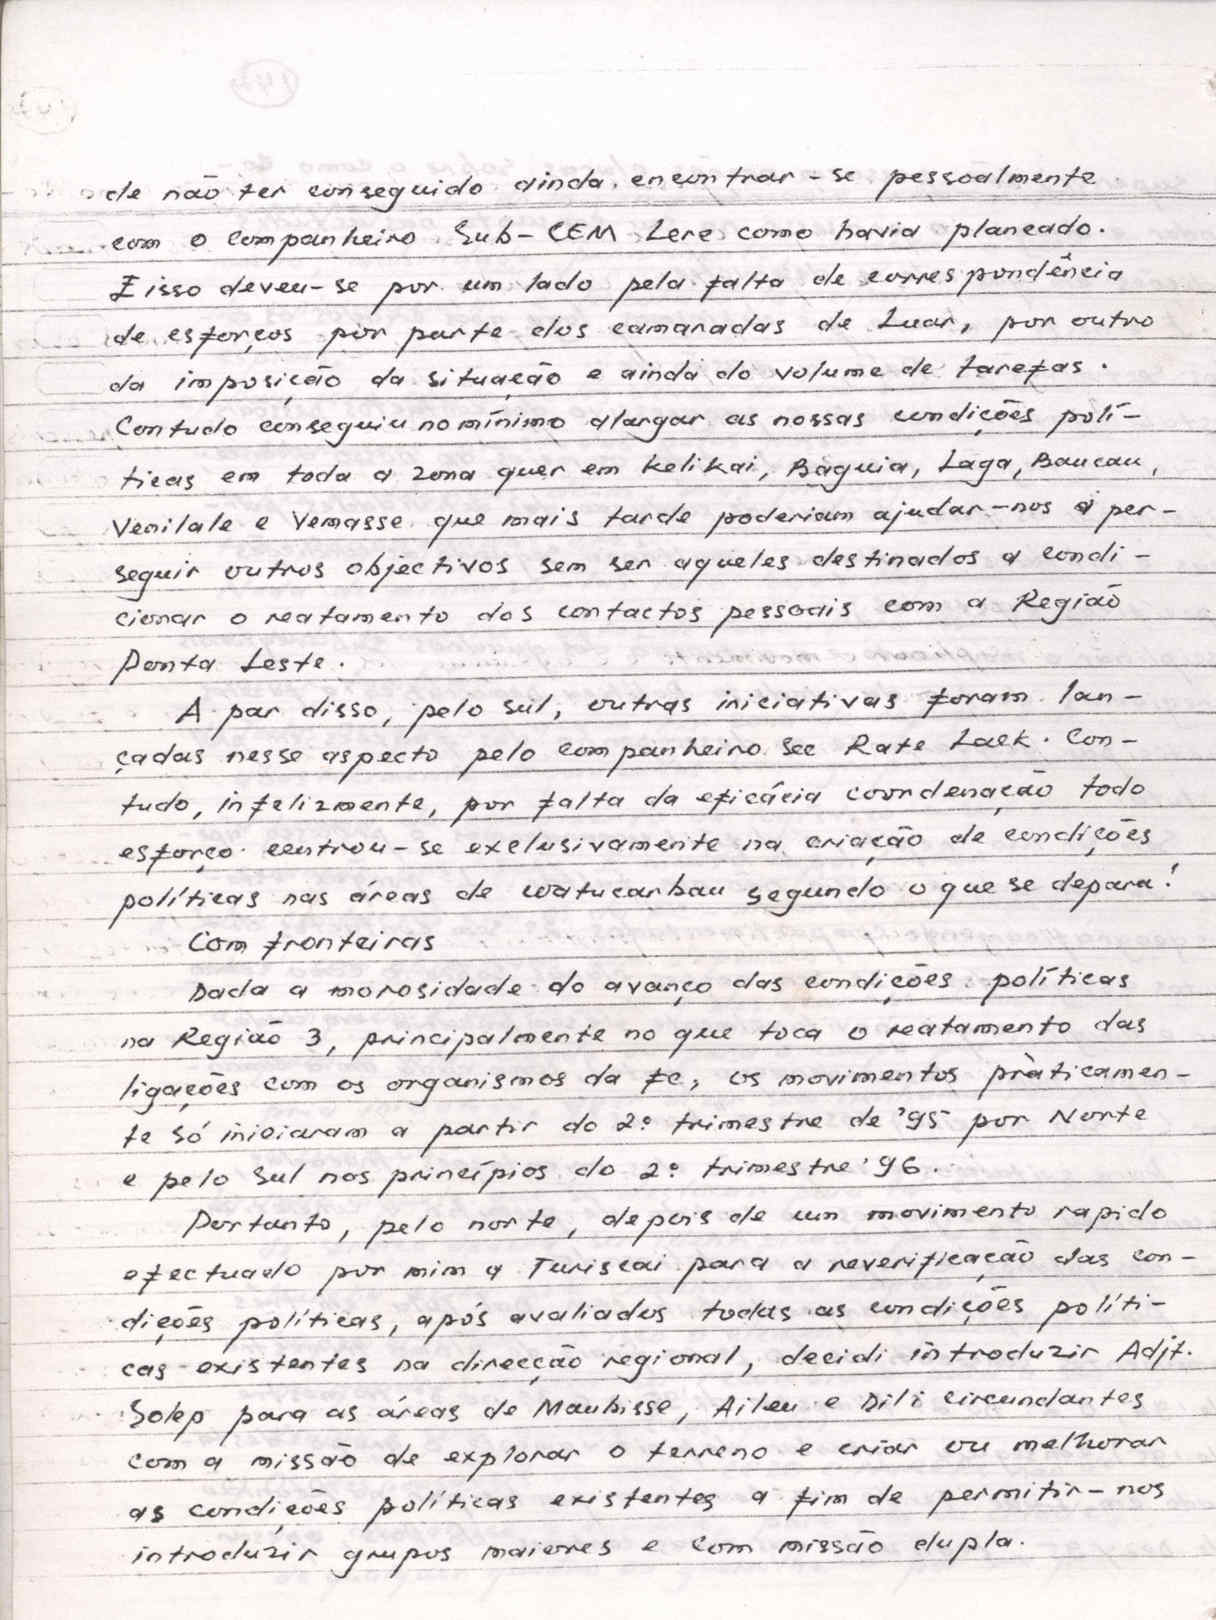 de não ter conseguido ainda encontrar-se pessoalmente
com o companheiro Sub-CEM Lere como havia planeado.
E isso deveu-se por um lado pela falta de correspondência
de esforços por parte dos camaradas de Luar, por outro
da imposição da situação e ainda do volume de tarefas.
Contudo conseguiu no mínimo alargar as nossas condições polí-
ticas em toda a zona quer em Kelikai, Baguia, Laga, Baucau,
Venilale e Vemasse que mais tarde poderiam ajudar-nos a per-
seguir outros objectivos sem ser aqueles destinados a condi-
cionar o reatamento dos contactos pessoais com a Região
Ponta Leste.
A par disso, pelo sul, outras iniciativas foram lan-
çadas nesse aspecto pelo companheiro Sec Rate Laek. Con-
tudo, infelizmente, por falta da eficácia coordenação todo
esforço centrou-se exclusivamente na criação de condições
políticas nas áreas de Watucarbau segundo o que se depara!
Com fronteiras
Dada a morosidade do avanço das condições políticas
na Região 3, principalmente no que toca o reatamento das
ligações com os organismos da FC, os movimentos pràticamen-
te só iniciaram a partir do 2º trimestre de '95 por Norte
e pelo Sul nos princípios do 2º trimestre '96.
Portanto, pelo norte, depois de um movimento rapido
efectuado por mim a Turiscai para a reverificação das con-
dições políticas, após avaliados todas as condições políti-
cas existentes na direcção regional, decidi introduzir Adjt.
Solep para as áreas de Maubisse, Aileu e Dili circundantes
com a missão de explorar o terreno e criar ou melhorar
as condições políticas existentes a fim de permitir-nos
introduzir grupos maiores e com missão dupla.